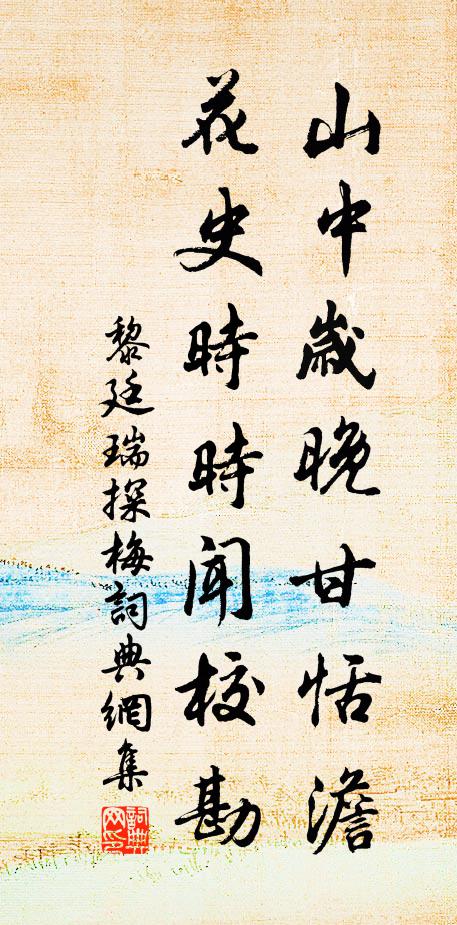 山中歲晚甘恬澹
花史時時聞校勘
黎廷瑞探梅詞典網集
詞典網印